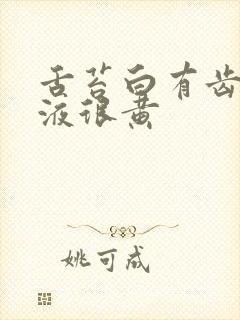 舌苔白有齿
液很黄
姚可成